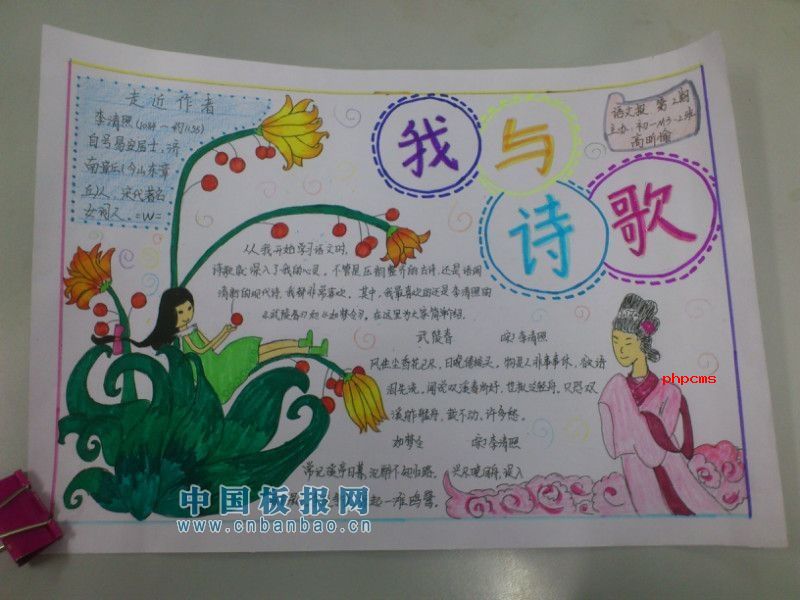 我与诗歌
语文报 第2期
主办:初一M3-2班
高昕愉
走近作者
李清照(1084-约1155)
自号易安居士,济
南章丘(今山东章
丘)人,宋代著名
女词人。=W=
从我开始学习语文时,
诗歌就深入了我的心灵,不管是
清新的现代诗,我都非常喜欢。其中,我最喜欢的还是李清照的
《武陵春》和《如梦令》,在这里为大家简单介绍。
武陵春 (宋)李清照
风住尘香花已尽,日晚倦梳头。物是人非事事休,欲语
泪先流。闻说双溪春尚好,也拟泛轻舟。只恐双
溪舴艋舟,载不动,许多愁。
如梦令 (宋)李清照
常记溪亭日暮,沉醉不知归路。兴尽晚回舟,误入
起一滩鸥鹭。
phpcms
中国板报网
www.cnbanbao.cn